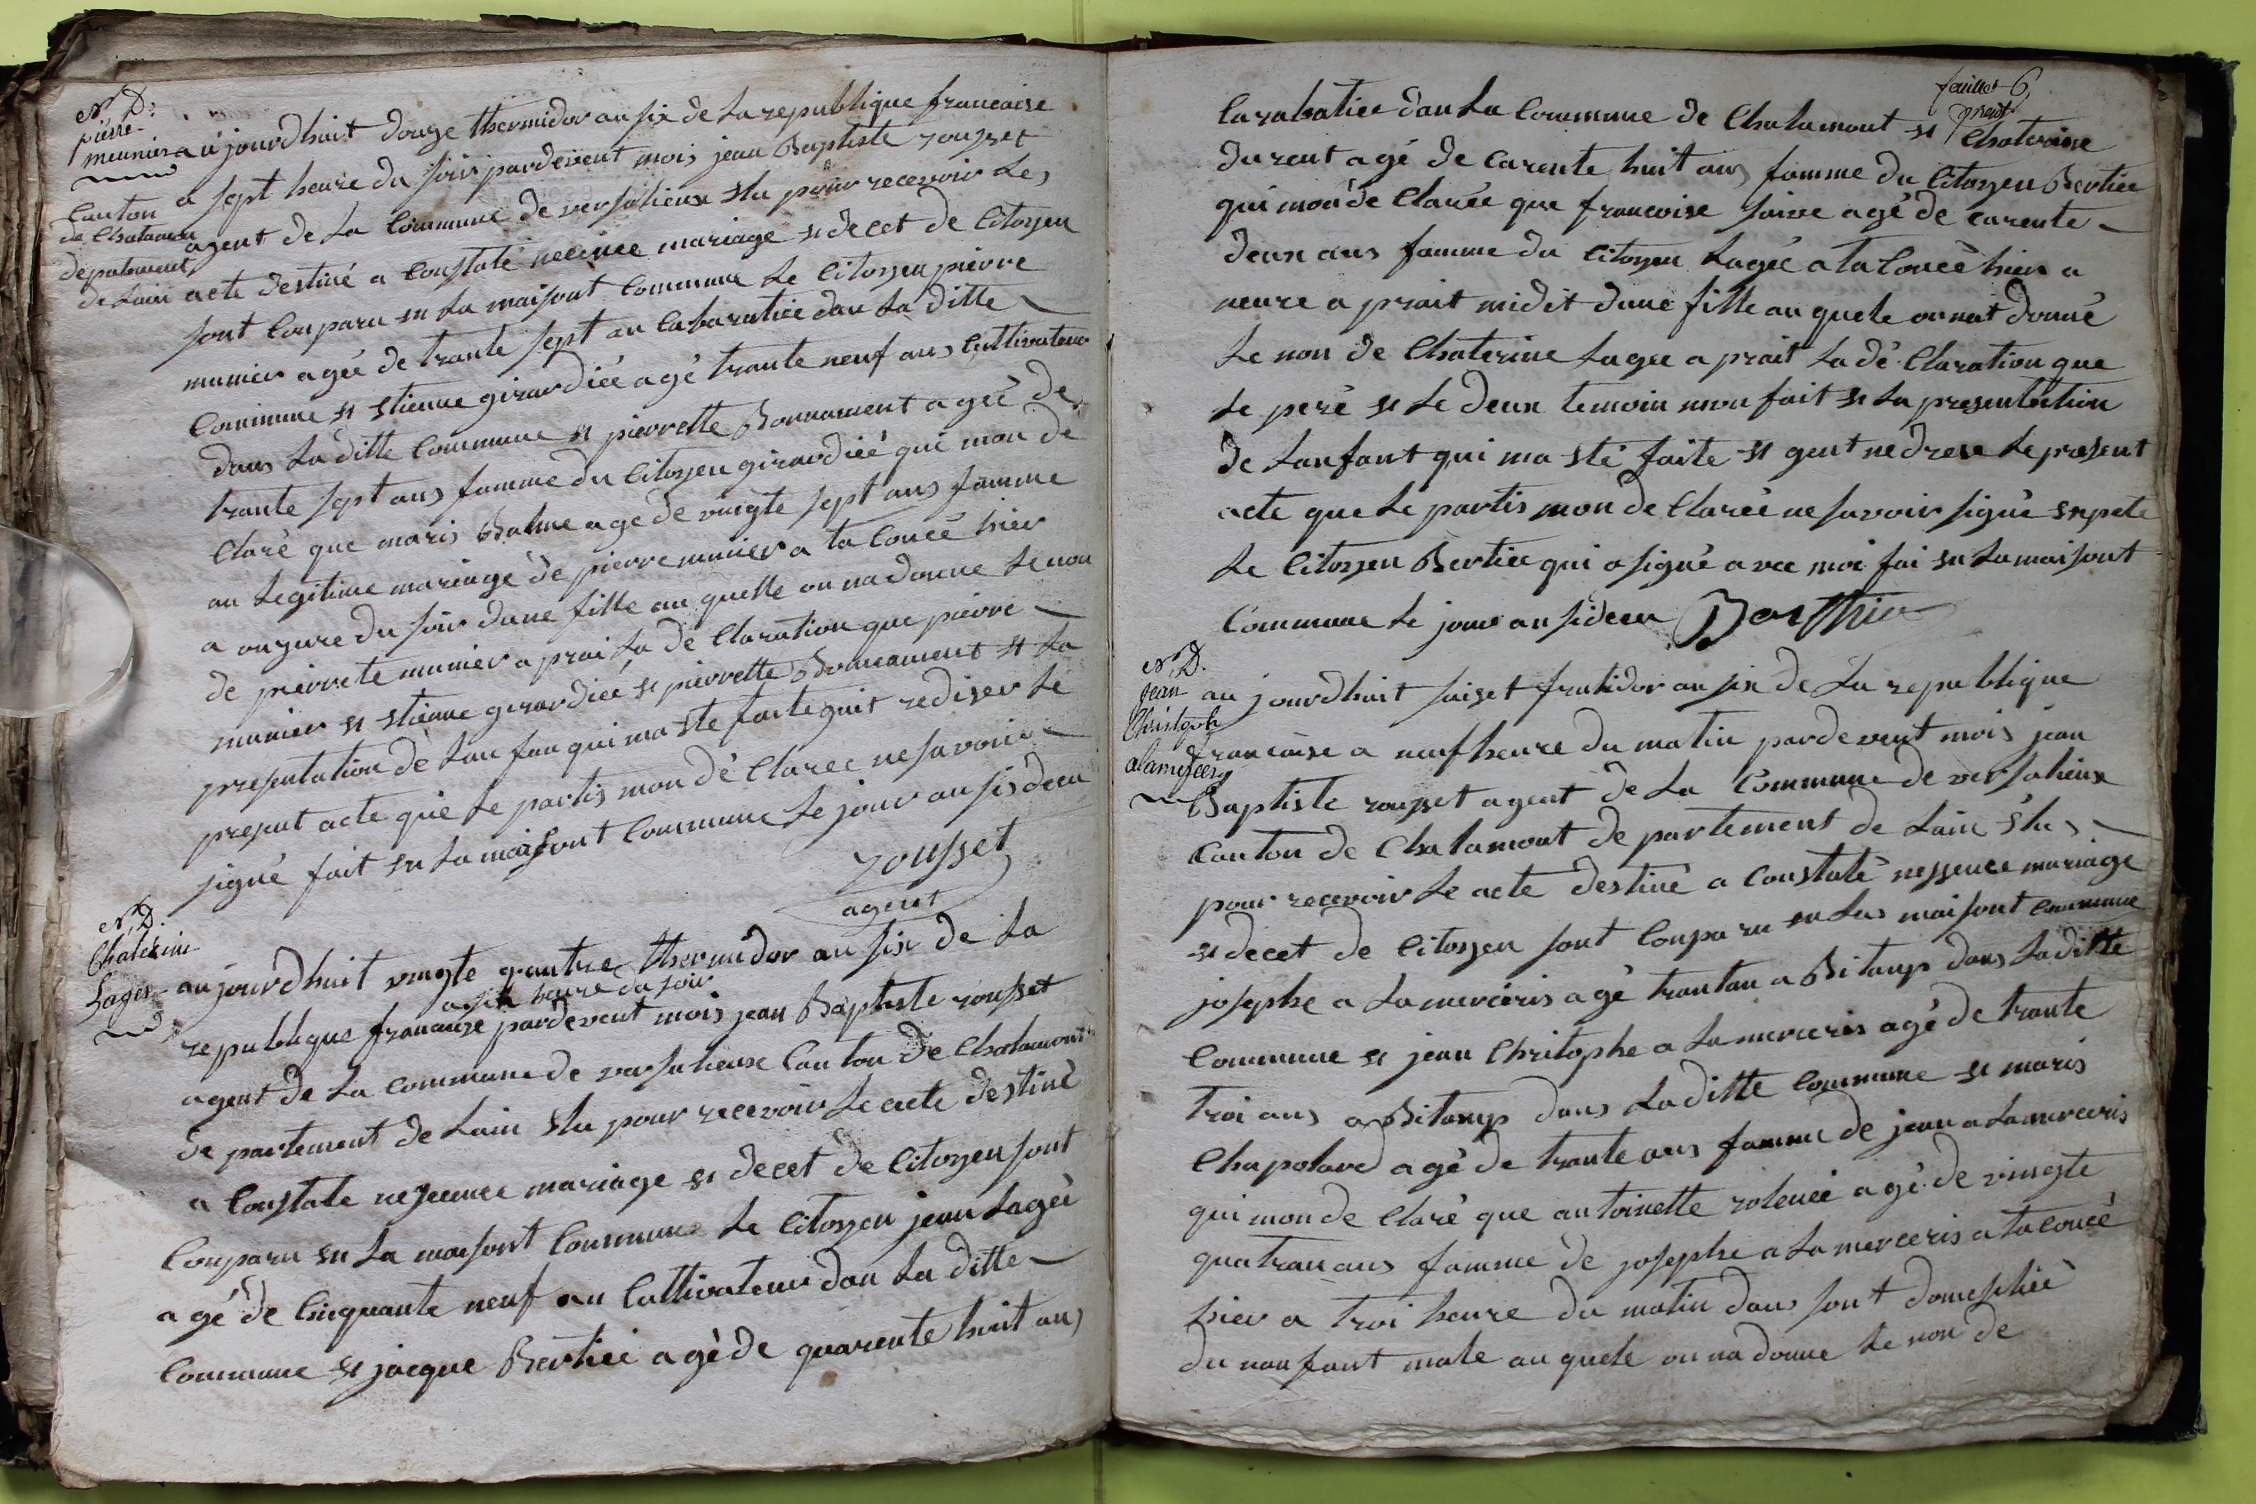 N. D.
pierre
meunier
aujourdhuit douze thermidor an six de La republique francaise
a sept heure du soir pardevent mois jean Baptiste rousset
Canton
de Chalamon
departement
de Lain
agent de La Commune de versalieux Elu pour recevoir Les
acte destiné a Constaté necince mariage et decet de Citoyen
sont Conparu en La maisont Commune Le Citoyen pierre
munier agée de trante sept an Cabaratiee dan La ditte
Commune et Etienne girardiée agé trante neuf ans Cultivateur
dans La ditte Commune et pierrette Bonnament agée de
trante sept ans famme du Citoyen girardiée qui mon de
Claré que maris Balme age de vingte sept ans famme
an Legitime mariage de pierre munier a ta Couée hier
a onzure du soir dune fille au quelle on na donne Le non
de pierrete munier a prai La de Claration que pierre
munier et Etienne gerardiée et pierrette Bonnament et La
presentation de Lan fan qui ma Ete faite gait rediser Le
present acte que Le partis mon dé Claree ne savoir
signé fait en La maisont Commune Le jour an sis decu
rousset
agent
N. D.
Chaterine
Lager
aujourdhuit vingte quatre thermidor an six de La
a sis heure du soir
republique francaize pardevent mois jean Baptiste rousset
agent de La Commune de versalieux Canton de Chalamont
de partement de Lain Elu pour recevoir Le acte destiné
a Constate nessence mariage et decet de Citoyen sont
Conparu en La maisont Commune Le Citoyen jean Lagée
agé de Cinquante neuf an Cultivateur dan La ditte
Commune et jacque Bertiée agé de quarente huit ans
feuillet 6
Cabaratiee dan La Commune de Chalamont et Chaterine
durent agé de Carente huit ans famme du Citoyen Bertiee
qui mon de Clarée que francoise faive agé de Carente
deux ans famme du Citoyen Lagée a ta Couée hier a
neure a prait midit dune fille au quele on nat donné
Le non de Chaterine Lagee a prait La dé Claration que
Le peré et Le deux temoin mon fait et La presentation
de Lanfant qui ma Eté faite et gent nedrese Le present
acte que Le partis mon de Clarée ne savoir signé Enpete
Le Citoyen Bertiee qui a signé a vec moi fai en La maisont
Commune Le jour an sidecu Berthier
N. D.
Jean
Christoph
alamercery
aujourdhuit saiset frutidor an six de La republique
francaise a neuf heure du matin pardevent mois jean
Baptiste rousset agent de La Commune de versalieux
Canton de Chalamont de partement de Lain Elu
pour recevoir Le acte destiné a Constaté nessence mariage
et decet de Citoyen sont Conparu en Las maisont Commune
josephe a La merceris agé trantan a Bitanp dans La ditte
Commune et jean Chritophe a La merceris agé de trante
troi ans a Bitanp dans La ditte Commune et maris
Chapolard agé de trante ans famme de jean a Lamerceris
qui mon de Claré que antoinette rolenée agé de vingte
quatran ans famme de josephe a La merceris a ta Coucé
hier a troi heure du matin dans sont domesiliée
du nanfant male au quele on na donne Le non de